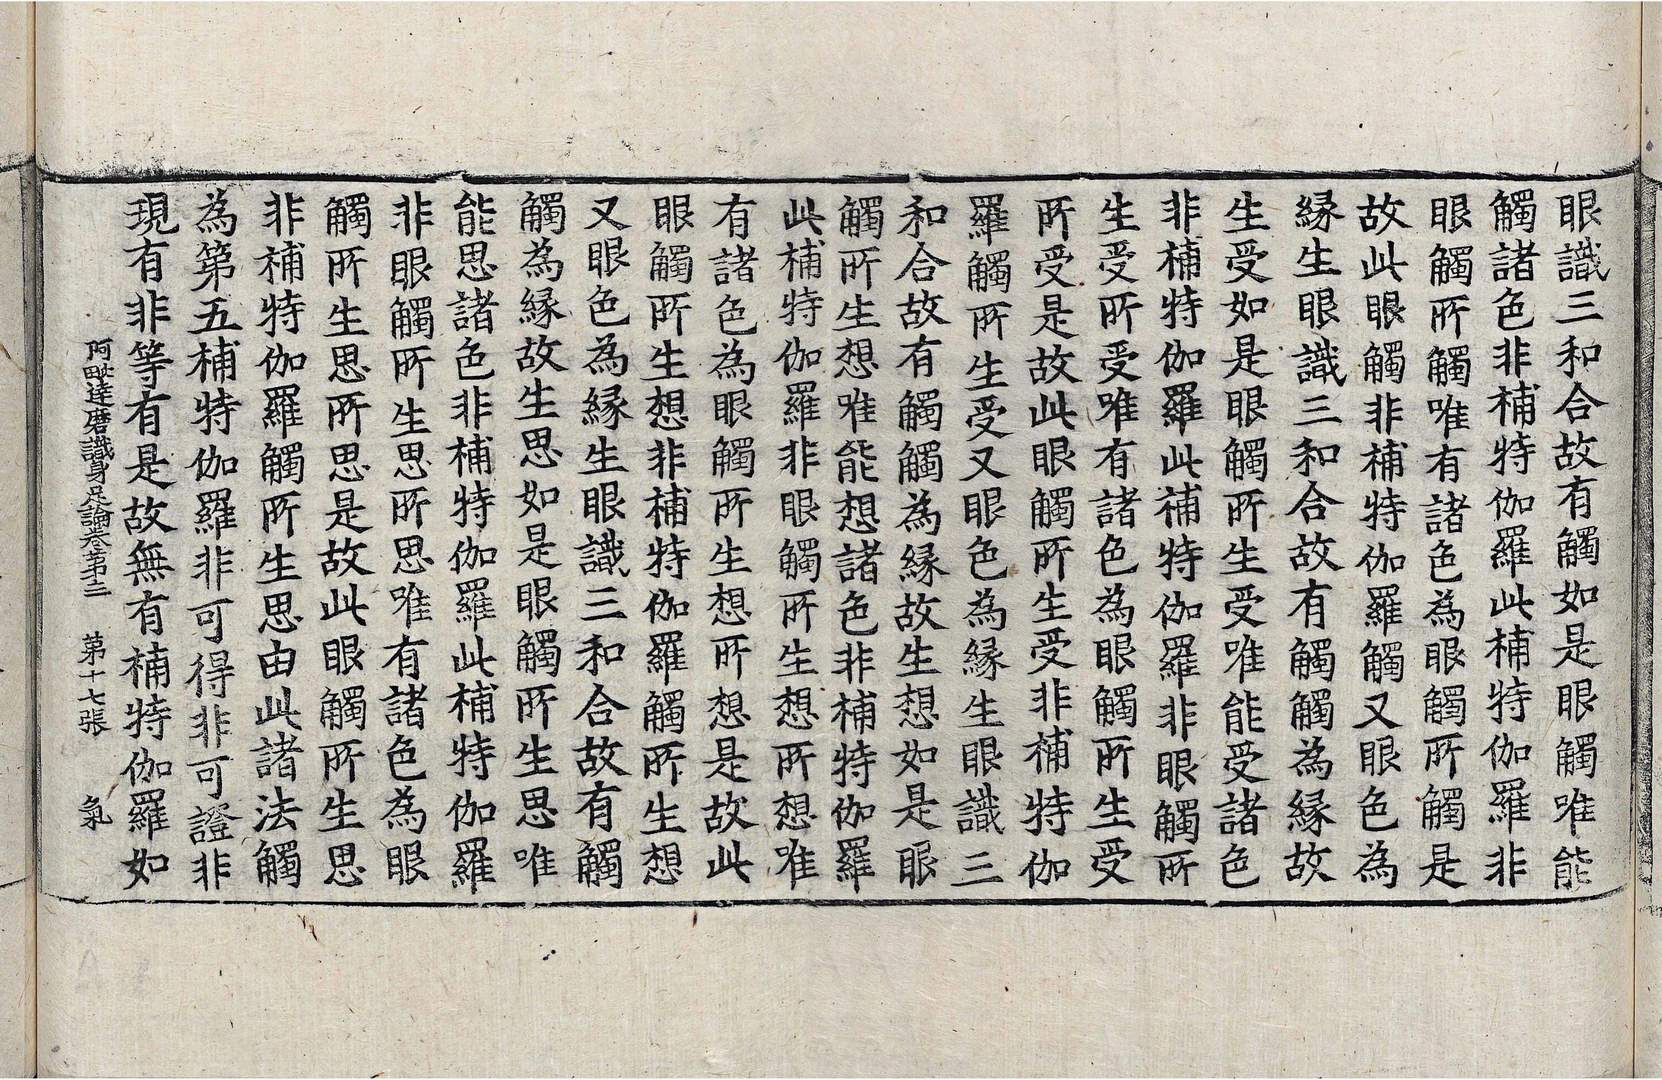 眼識三和合故有觸如是眼觸唯能
觸諸色非補特伽羅此補特伽羅非
眼觸所觸唯有諸色為眼觸所觸是
故此眼觸非補特伽羅觸又眼色為
緣生眼識三和合故有觸觸為緣故
生受如是眼觸所生受唯能受諸色
非補特伽羅此補特伽羅非眼觸所
生受所受唯有諸色為眼觸所生受
所受是故此眼觸所生受非補特伽
羅觸所生受又眼色為緣生眼識三
和合故有觸觸為緣故生想如是眼
觸所生想唯能想諸色非補特伽羅
此補特伽羅非眼觸所生想所想唯
有諸色為眼觸所生想所想是故此
眼觸所生想非補特伽羅觸所生想
又眼色為緣生眼識三和合故有觸
觸為緣故生思如是眼觸所生思唯
能思諸色非補特伽羅此補特伽羅
非眼觸所生思所思唯有諸色為眼
觸所生思所思是故此眼觸所生思
非補特伽羅觸所生思由此諸法觸
為第五補特伽羅非可得非可證非
現有非等有是故無有補特伽羅如
阿毗達磨識身足論卷第三 第十七張 氣